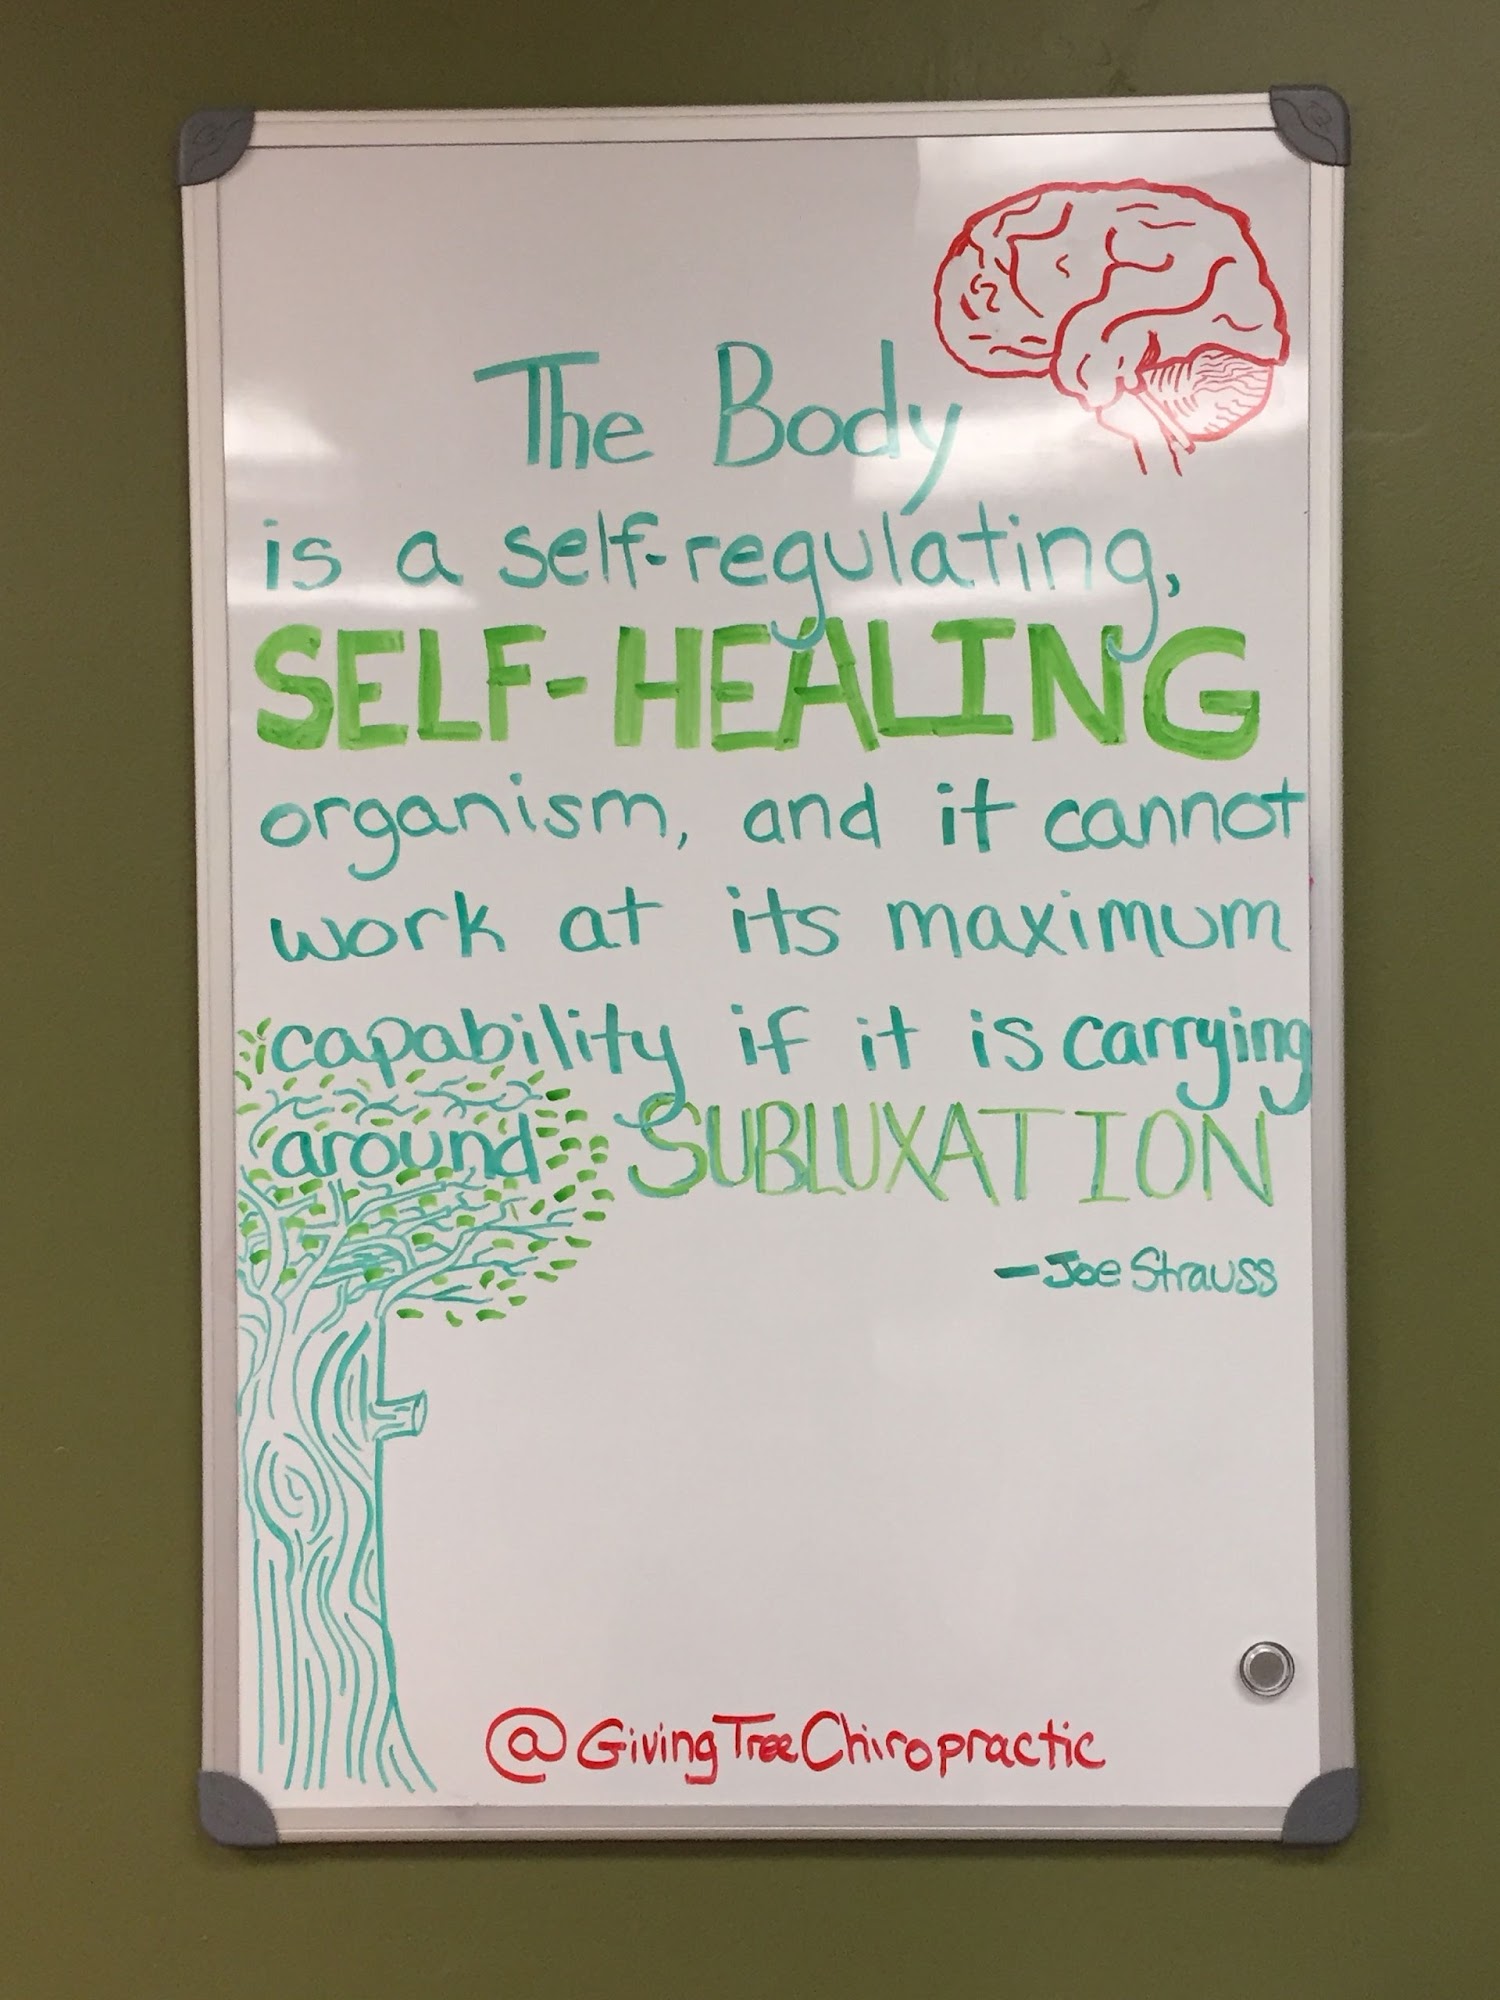 The Body
is a self-regulating,
SELF-HEALING
organism, and it cannot
work at its maximum
capability if it is carrying
around SUBLUXATION
—Joe Strauss
@GivingTreeChiropractic